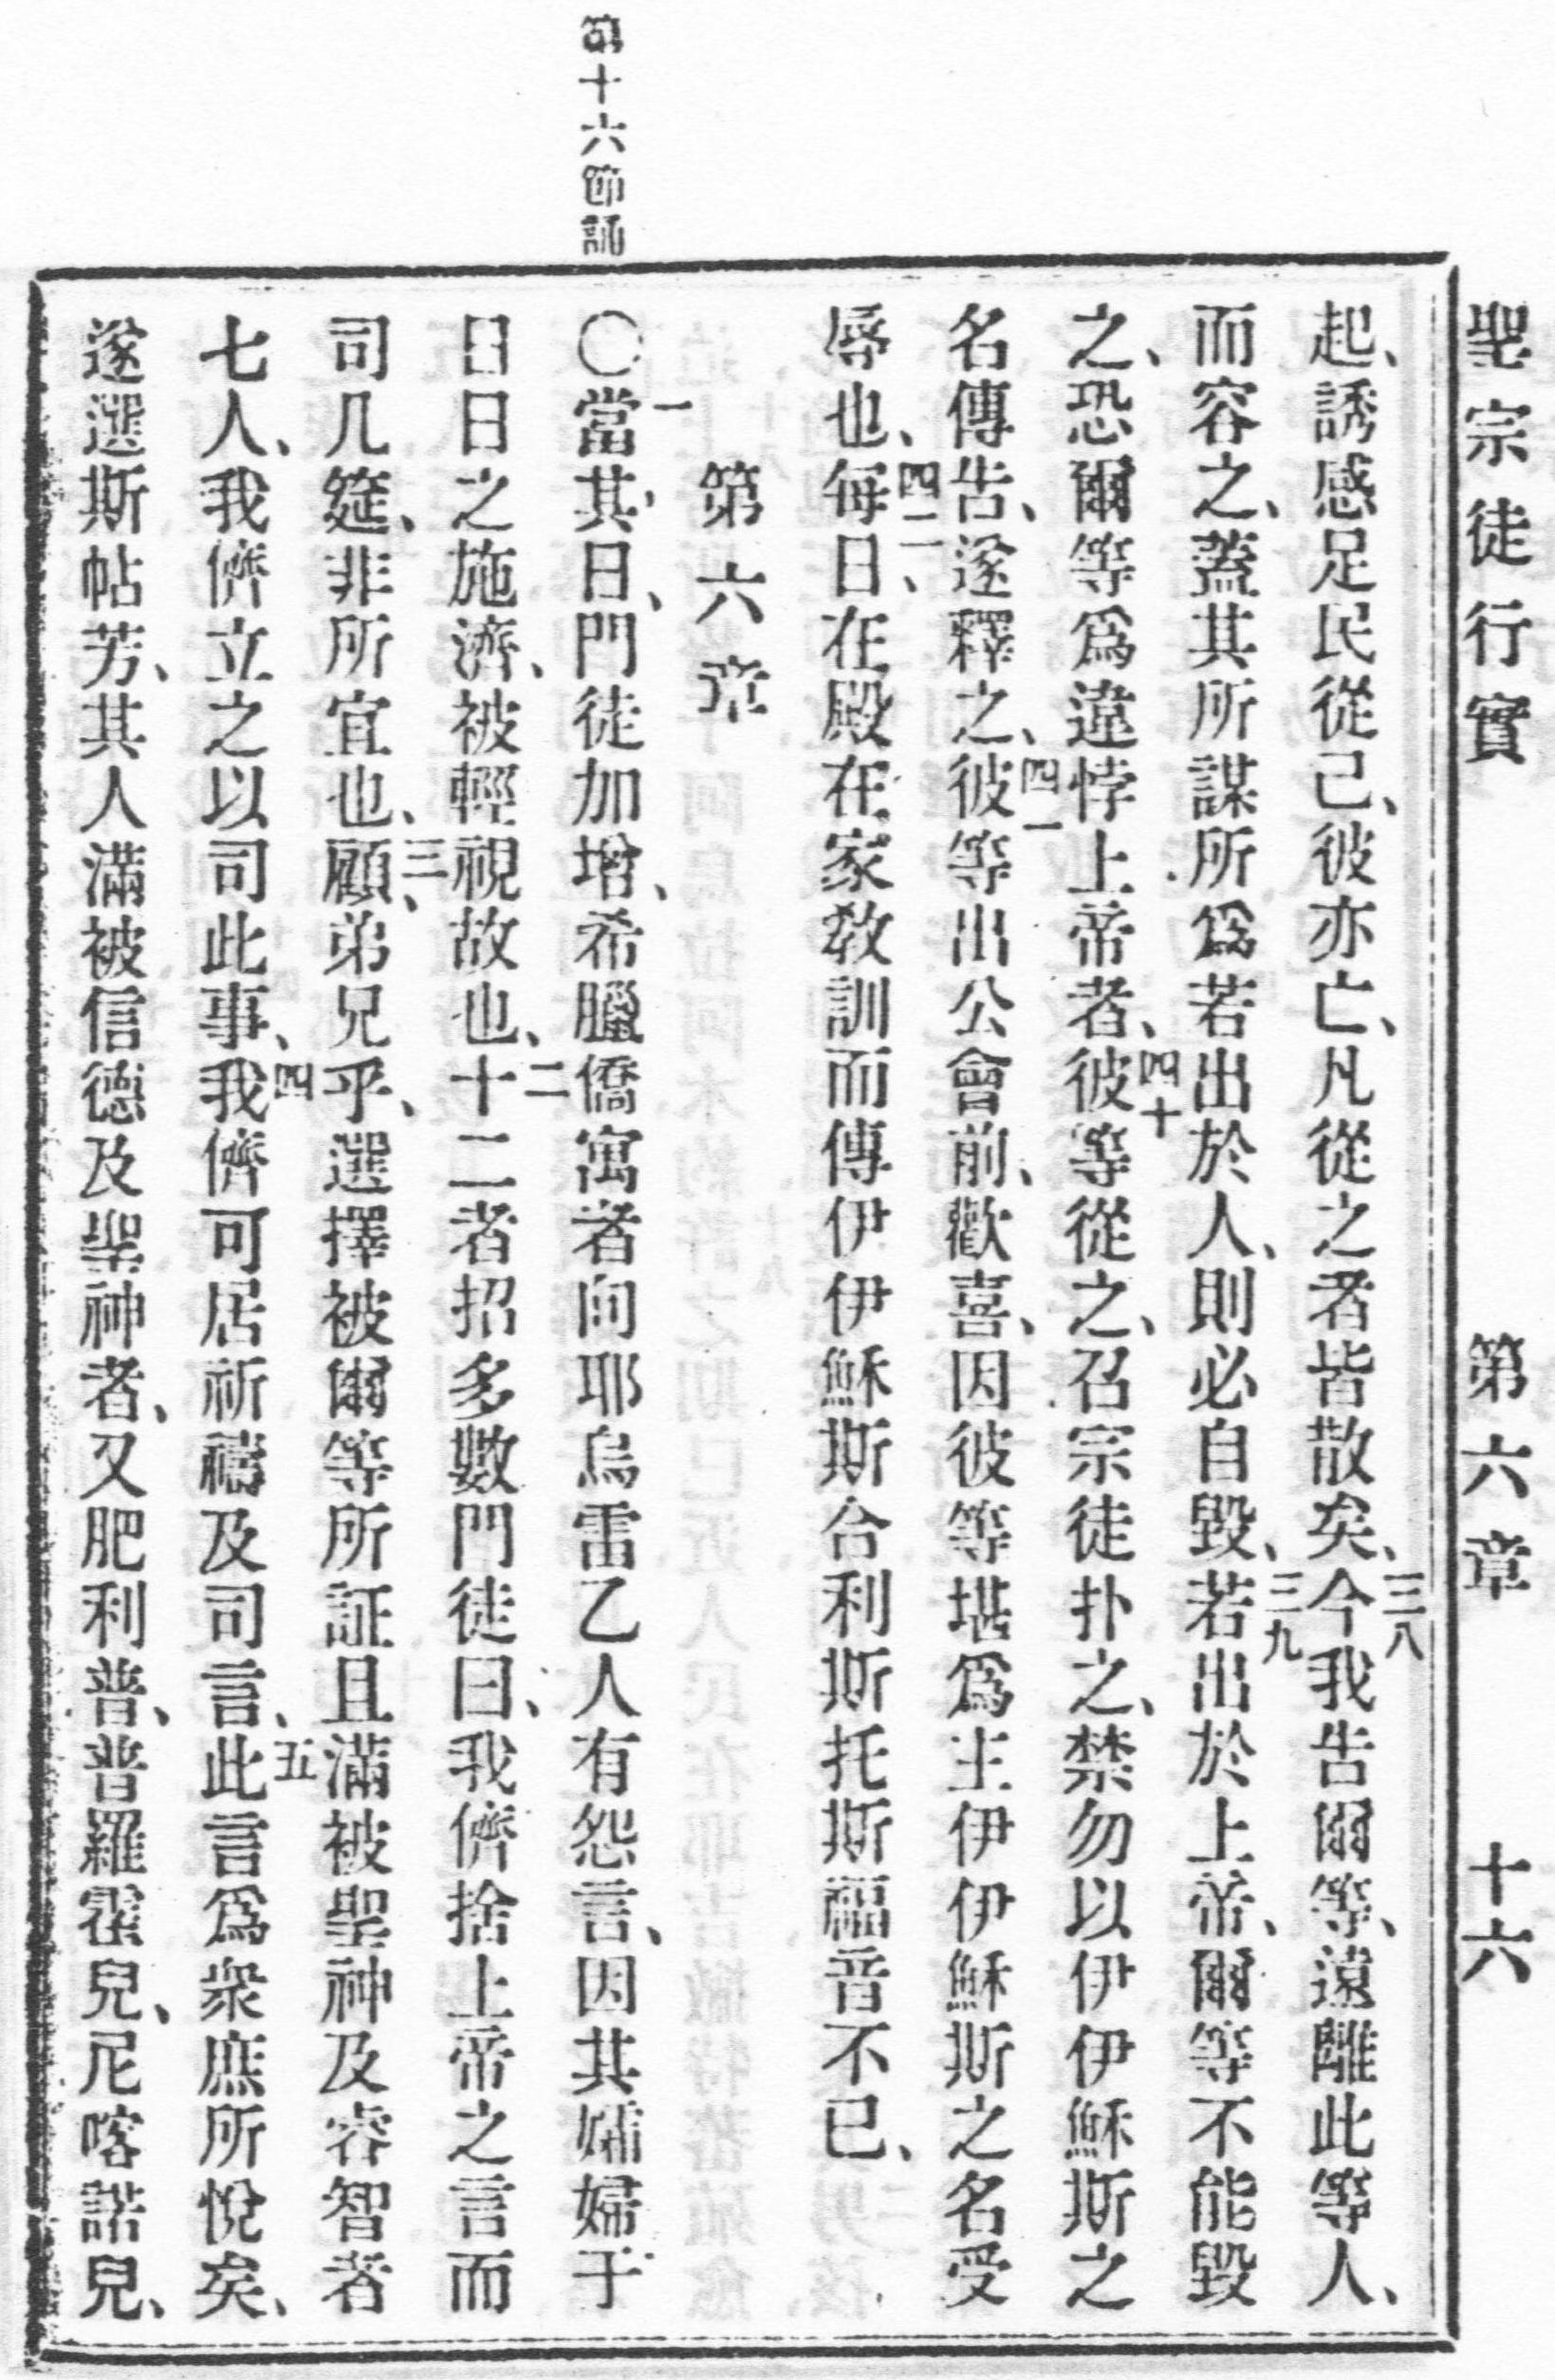 聖宗徒行實 第六章 十六
起、誘感足民從己、彼亦亡、凡從之者皆散矣、三八今我告爾等、遠離此等人、
而容之、蓋其所謀所爲若出於人、則必自毀、三九若出於上帝、爾等不能毀
之、恐爾等爲違悖上帝者、四十彼等從之、召宗徒扑之、禁勿以伊伊穌斯之
名傳告、遂釋之、四一彼等出公會前、歡喜、因彼等堪爲主伊伊穌斯之名受
辱也、四二每日、在殿在家教訓而傳伊伊穌斯合利斯托斯福音不已、
第六章
第十六節誦
〇一當其日、門徒加增、希臘僑寓者向耶烏雷乙人有怨言、因其孀婦于
日日之施濟、被輕視故也、二十二者招多數門徒曰、我儕捨上帝之言而
司几筵、非所宜也、三顧、弟兄乎、選擇被爾等所証且滿被聖神及睿智者
七人、我儕立之以司此事、四我儕可居祈禱及司言、五此言爲衆庶所悅矣、
遂選斯帖芳、其人滿被信德及聖神者、又肥利普、普羅霍兒、尼喀諾兒、